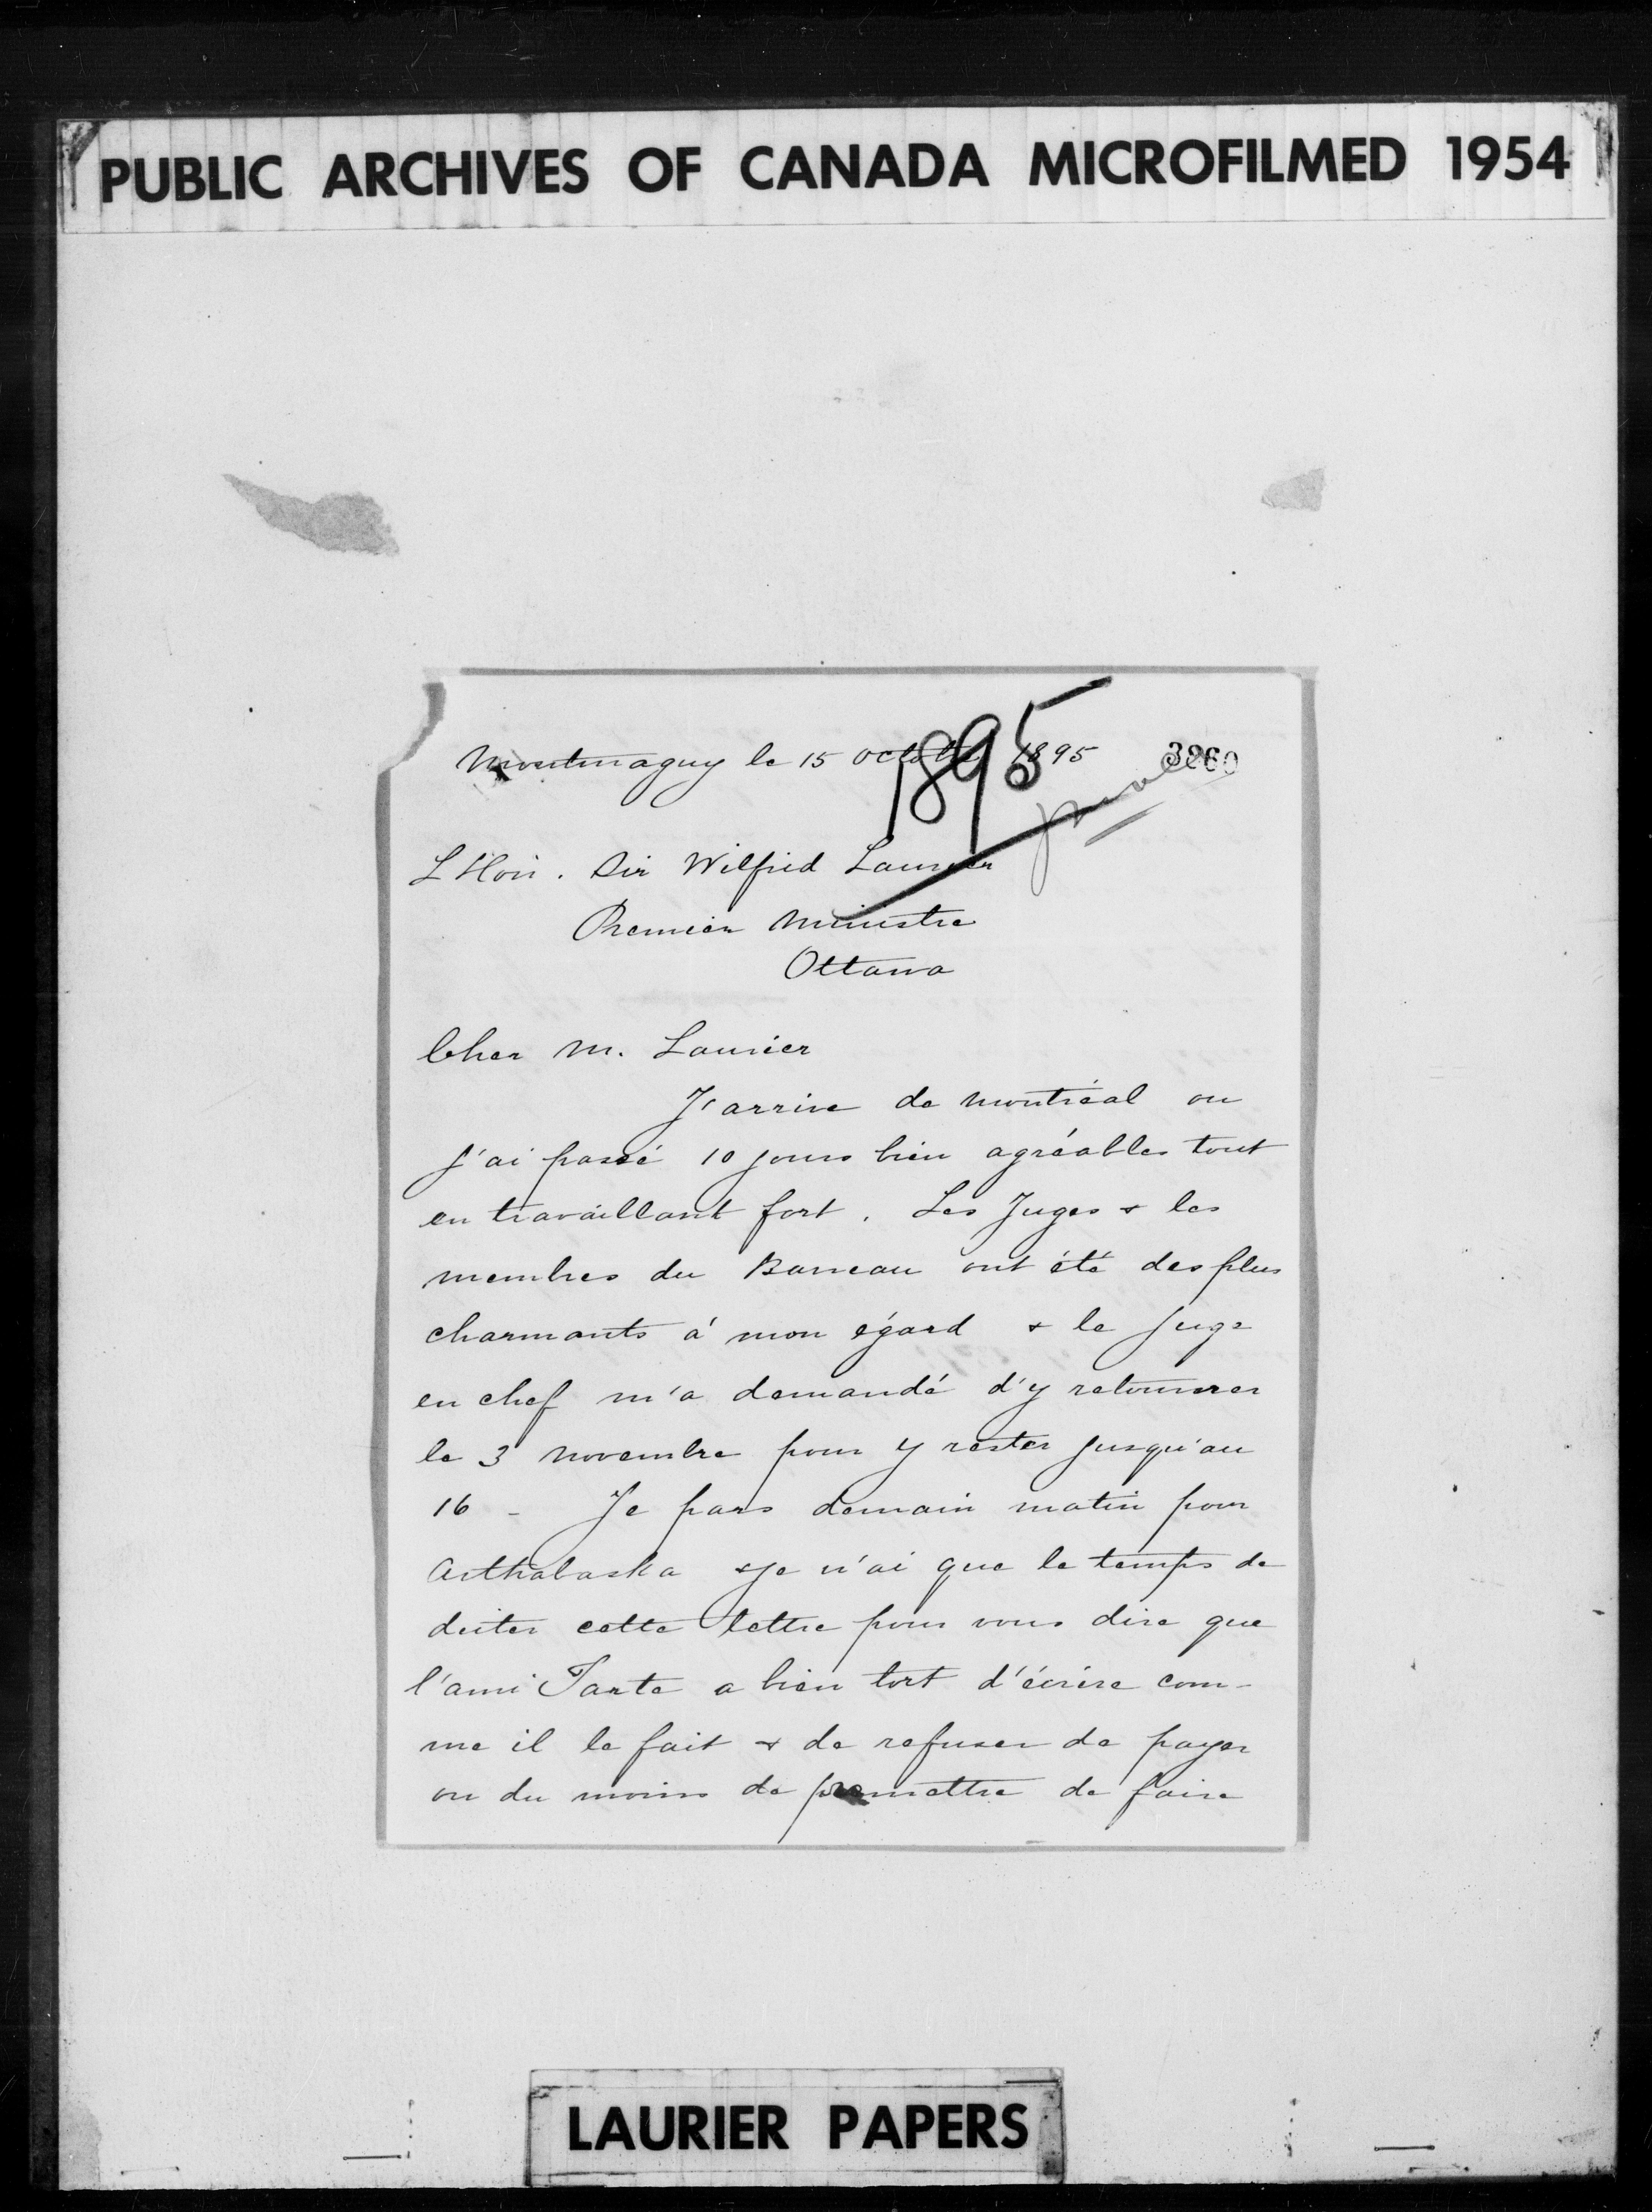 PUBLIC ARCHIVES OF CANADA MICROFILMED 1954
Montmagny le 15 octobre 1895
1895
3260
L Hon. Sir Wilfrid Laurier
Premier Ministre
Ottawa
Cher M. Laurier
J'arrive de Montréal ou
j'ai passé 10 jours bien agréables tout
en travaillant fort. Les Juges & les
membres du Barreau ont été des plus
charmants à mon égard & le Juge
en chef m'a demandé d'y retourner
le 3 Novembre pour y rester jusqu'au
16 - Je pars demain matin pour
Arthabaska & je n'ai que le temps de
dicter cette lettre pour vous dire que
l'ami Tarte a bien tort d'écrire com-
me il le fait & de refuser de payer
ou du moins de promettre de faire
LAURIER PAPERS